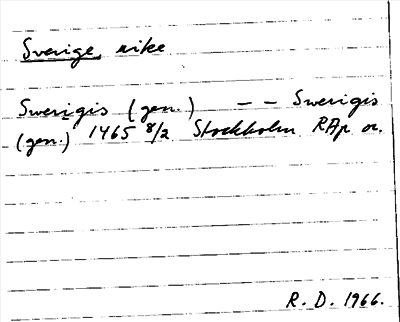 Sverige, rike
Swerigis (gen.) – – Swerigis
(gen.) 1465 8/2 Stockholm RAp or.
R. D. 1966.